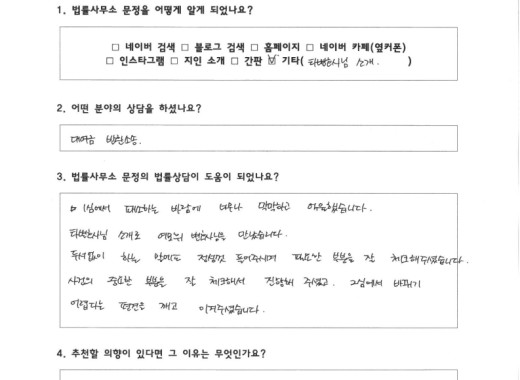 1. 법률사무소 문정을 어떻게 알게 되었나요?
□ 네이버 검색 □ 블로그 검색 □ 홈페이지 □ 네이버 카페(옆커폰)
□ 인스타그램 □ 지인 소개 □ 간판 ☑ 기타( 타변호사님 소개. )
2. 어떤 분야의 상담을 하셨나요?
대여금 반환소송.
3. 법률사무소 문정의 법률상담이 도움이 되었나요?
1심에서 패소하는 바람에 너무나 막막하고 억울했습니다.
타변호사님 소개로 변호사님을 만났습니다.
두서없이 하는 말에도 정성껏 들어주시며 필요한 부분을 잘 체크해주셨습니다.
사건의 중요한 부분을 잘 체크해서 진행해 주셨고, 2심에서 바뀌기
어렵다는 편견을 깨고 이겨주셨습니다.
4. 추천할 의향이 있다면 그 이유는 무엇인가요?